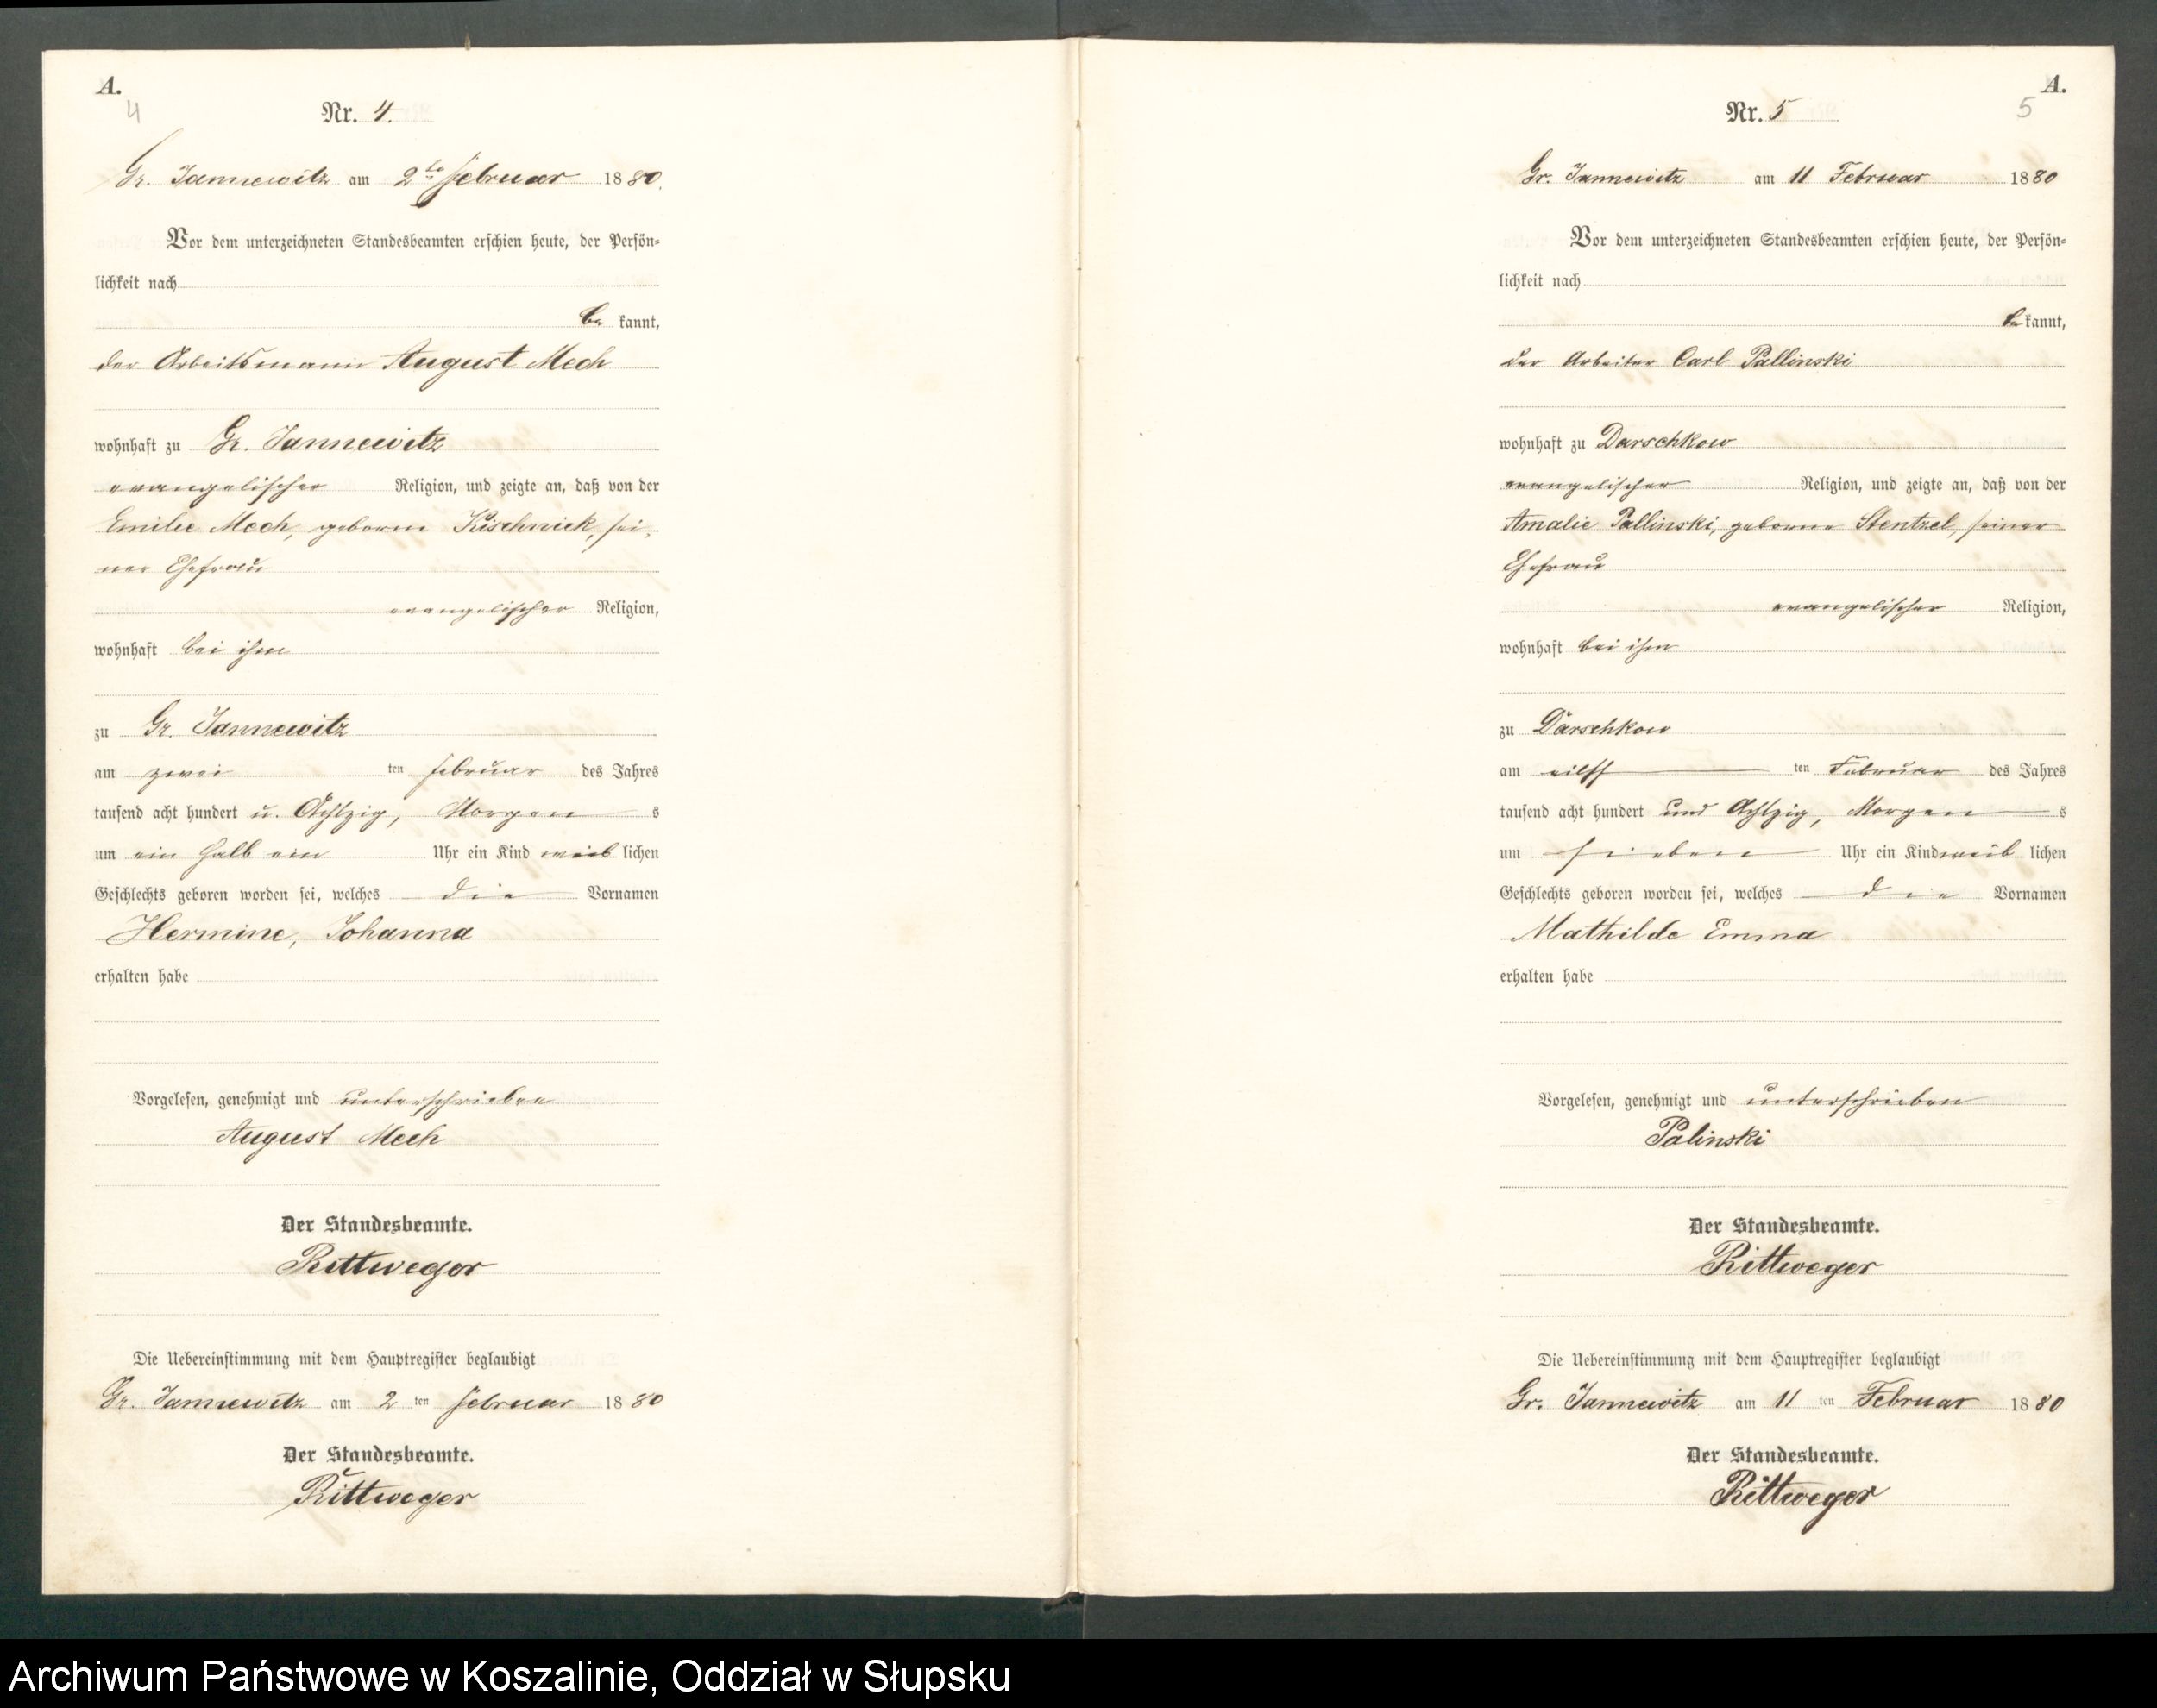 A.
4
Nr. 4.
Gr. Jannewitz am 2ten Februar 1880.
Vor dem unterzeichneten Standesbeamten erschien heute, der Persön-
lichkeit nach
be kannt,
der Arbeitsmann August Mech
wohnhaft zu Gr. Jannewitz
evangelischer Religion, und zeigte an, daß von der
Emilie Mech, geborne Kischnick, sei-
ner Ehefrau
evangelischer Religion,
wohnhaft bei ihm
zu Gr. Jannewitz
am zwei ten Februar des Jahres
tausend acht hundert u. Achtzig, Morgen s
um ein halb ein Uhr ein Kind weib lichen
Geschlechts geboren worden sei, welches die Vornamen
Hermine, Johanna
erhalten habe
Vorgelesen, genehmigt und unterschrieben
August Mech
Der Standesbeamte.
Rittweger
Die Uebereinstimmung mit dem Hauptregister beglaubigt
Gr. Jannewitz am 2 ten Februar 1880
Der Standesbeamte.
Rittweger
A.
5
Nr. 5
Gr. Jannewitz am 11 Februar 1880
Vor dem unterzeichneten Standesbeamten erschien heute, der Persön-
lichkeit nach
be kannt,
der Arbeiter Carl Pallinski
wohnhaft zu Darschkow
evangelischer Religion, und zeigte an, daß von der
Amalie Pallinski, geborne Stentzel, seiner
Ehefrau
evangelischer Religion,
wohnhaft bei ihm
zu Darschkow
am eilf ten Februar des Jahres
tausend acht hundert und Achtzig, Morgen s
um sieben Uhr ein Kind weib lichen
Geschlechts geboren worden sei, welches die Vornamen
Mathilde Emma
erhalten habe
Vorgelesen, genehmigt und unterschrieben
Palinski
Der Standesbeamte.
Rittweger
Die Uebereinstimmung mit dem Hauptregister beglaubigt
Gr. Jannewitz am 11 ten Februar 1880
Der Standesbeamte.
Rittweger
Archiwum Państwowe w Koszalinie, Oddział w Słupsku